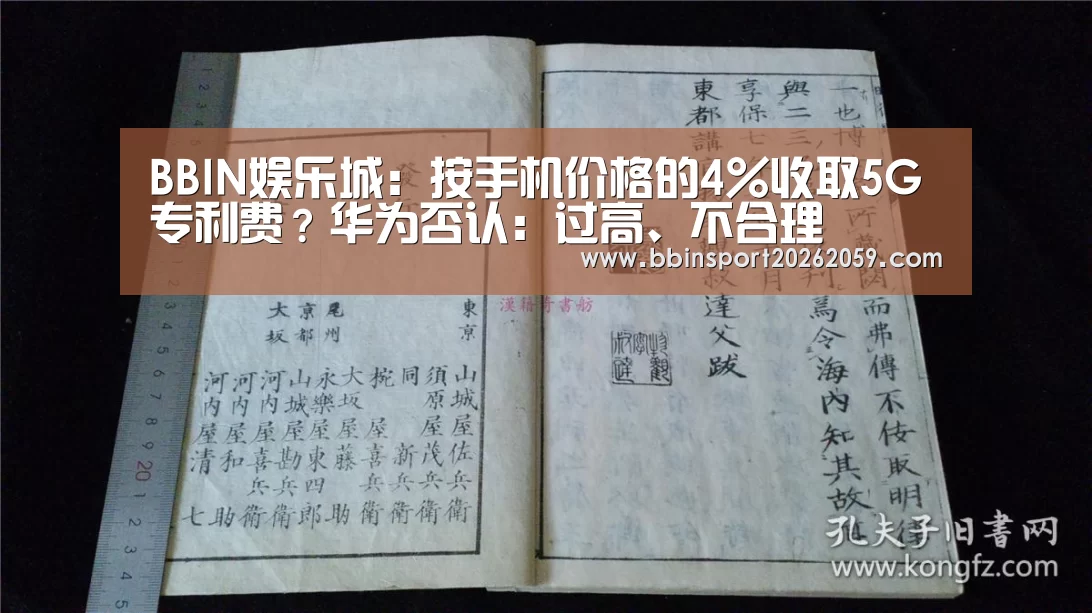 BBIN娱乐城：按手机价格的4%收取5G
专利费？华为否认：过高、不合理
www.bbinsport20262059.com
一也博
所蔵閲而弗傳不仗取明徳
刊焉令海内知其故
與二三
月
享保七
東都講
達父跋
漢籍奇書舫
東京
山城屋佐兵衛
須原屋茂兵衛
同
新兵衛
椀屋喜兵衛
大坂屋藤助
尾州
永樂屋東四郎
京都
山城屋勘兵衛
大坂
河内屋喜兵衛
河内屋和助
河内屋清七
孔夫子旧書网
www.kongfz.com